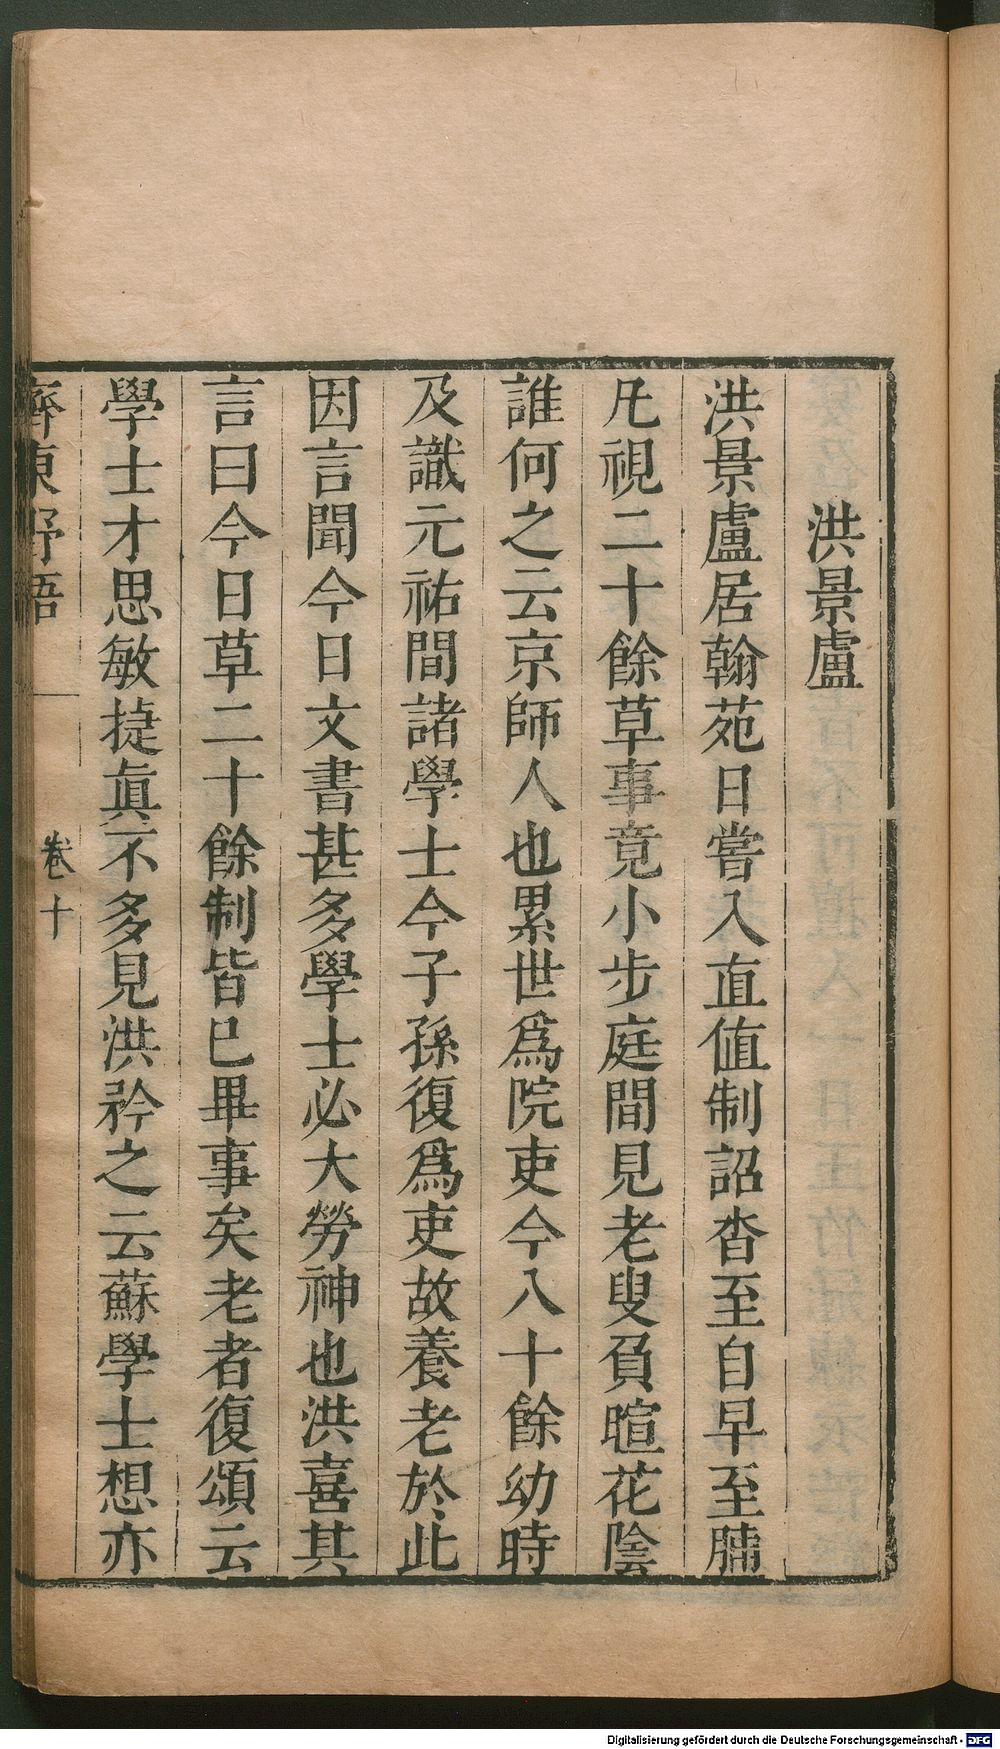 洪景盧
洪景盧居翰苑日嘗入直值制詔沓至自早至晡
凡視二十餘草事竟小步庭間見老叟負暄花陰
誰何之云京師人也累世爲院吏今八十餘幼時
及識元祐間諸學士今子孫復爲吏故養老於此
因言聞今日文書甚多學士必大勞神也洪喜其
言曰今日草二十餘制皆已畢事矣老者復頌云
學士才思敏捷眞不多見洪矜之云蘇學士想亦
齊東野語
卷十
Digitalisierung gefördert durch die Deutsche Forschungsgemeinschaft - DFG